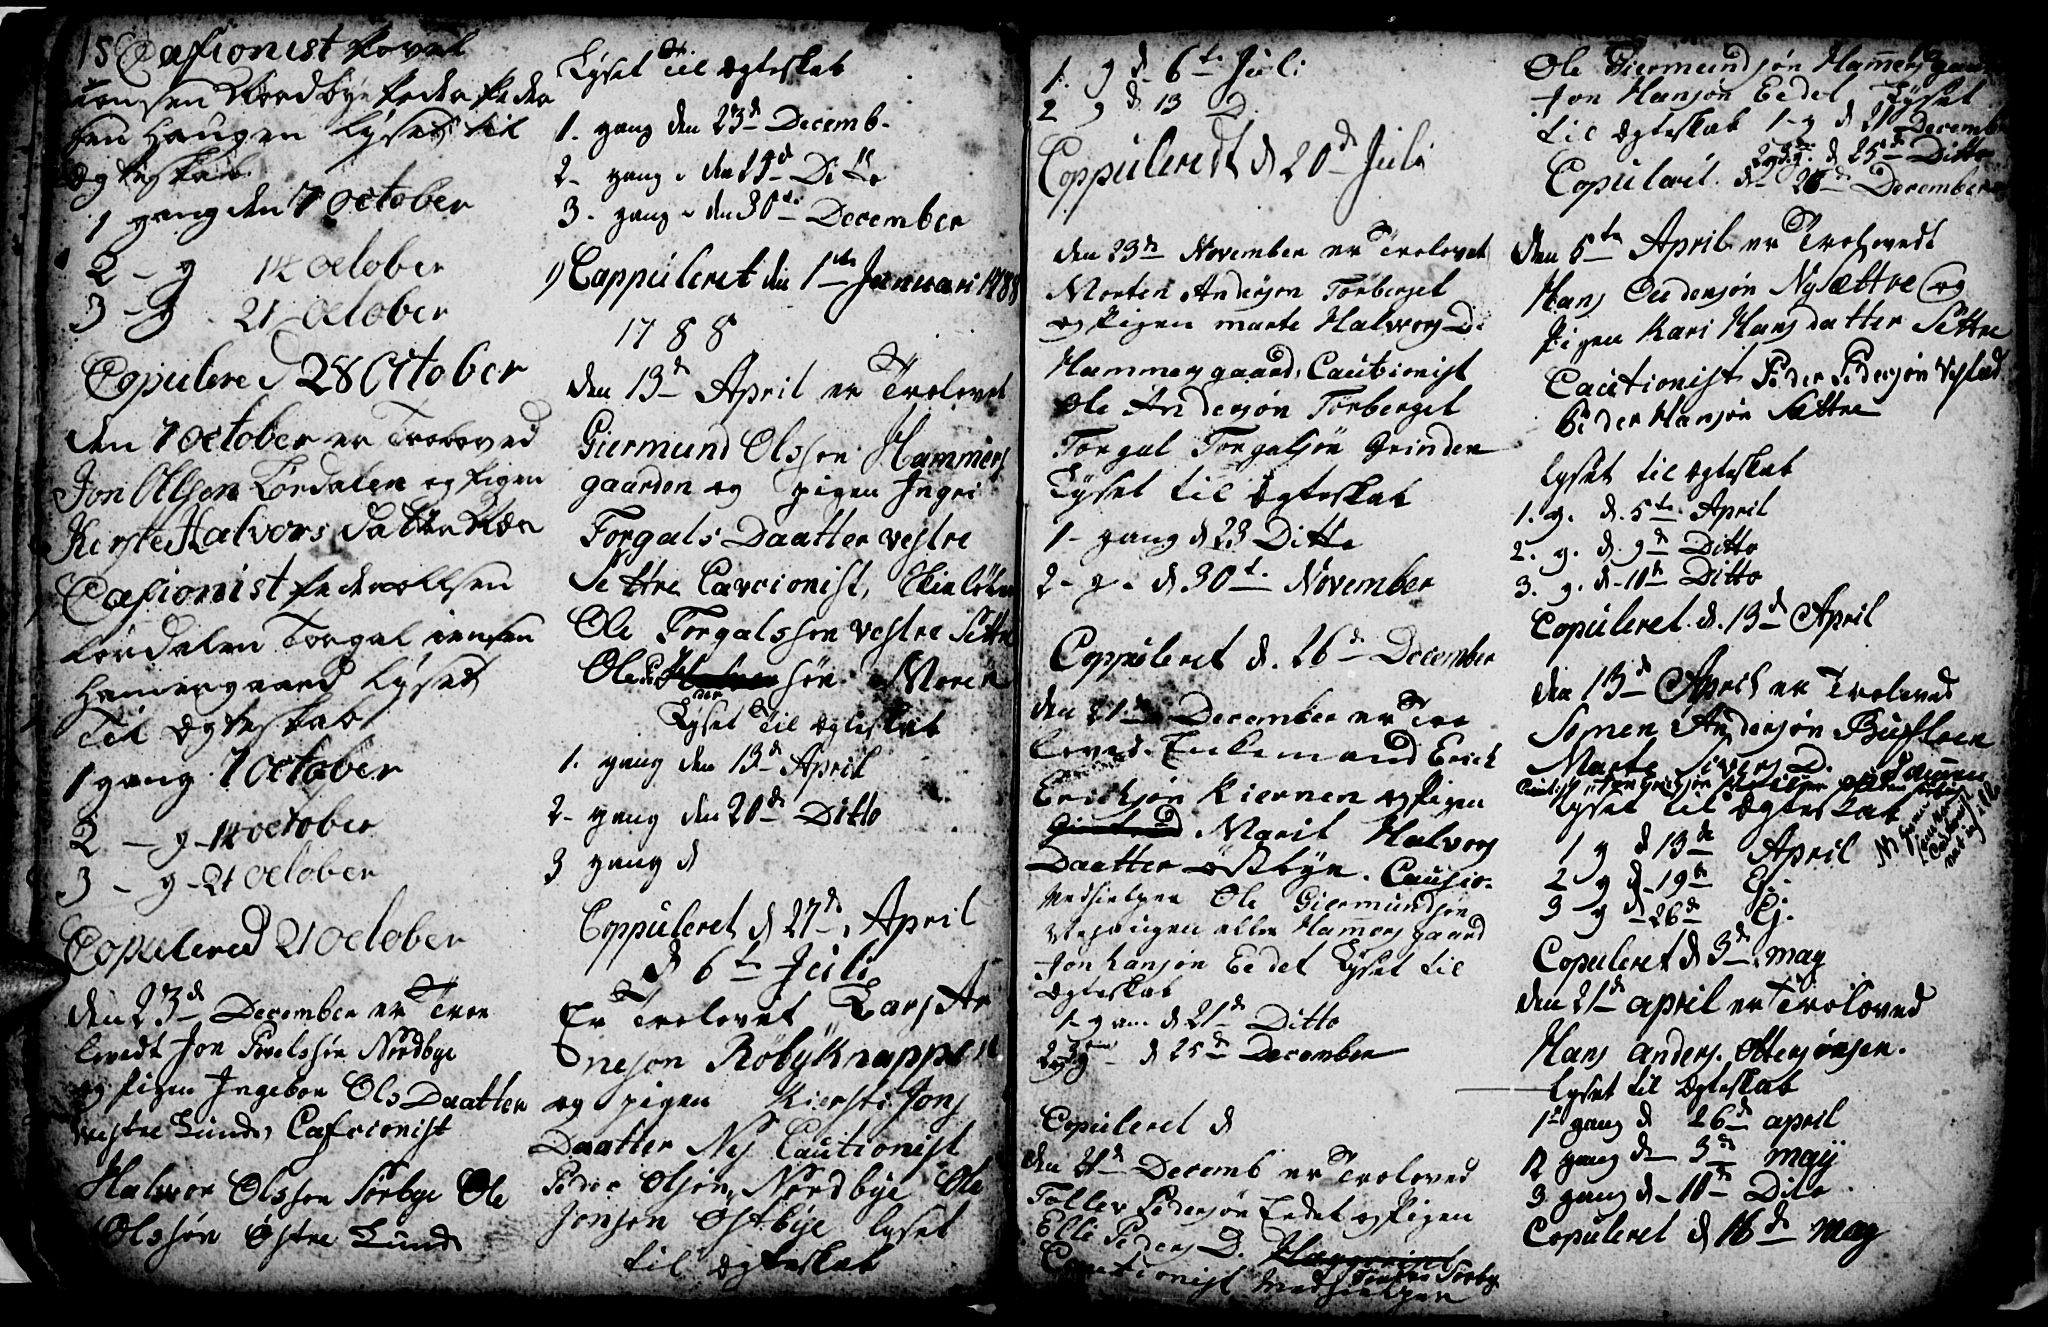 15 Cafionist Povel
iensen Nordbÿe Peder Peder
sen Haugen lÿset til
Ægteskab
1 gang den 7 October
2 - g 14 October
3 - g - 21 October
Copulered 28 October
den 7 October er Troloved
Jon Ollsen Lördalen og Pigen
Kirste Halvors datter
Cafionist Peder ollsen
Lördalen Torgal iensen
Hamergaard Lÿset
Til Ægteskab
1 gang 7 October
2 - g - 14 october
3 - g - 21 October
Copulered 21 October
den 23d December er Troe
lovedt Jon Povelssön Nordbÿe
og Pigen Ingebor Ols Daatter
Vestre Lunde, Cafcionist
Halvor Olssen Sörbÿe Ole
Olssön Östre Lunde
Lÿset Til Ægteskab
1. gang den 23d Decemb.
2 - gang - den Ditto
3 - gang - den 30te December
1) Coppuleret den 1te Januari 1788
1788
den 13de April er Trolovet
Giermund Olssen Hammers
gaarden og pigen Ingri
Torgals Daatter Vestre
Settre Cavcionist,
Ole Torgalssen Vestre Settre
Ole sön Moren
Lÿset Til Ægteskab
1. gang den 13de April
2 - gang den 20de Ditto
3 gang d
Coppuleret d 27de April
d 6te Juli
Er Trolovet Lars Ar
neson Röbÿknappen
og pigen Kiersti Jons
Daatter Nÿs Cautionist
Peder Olsön Nordbÿe Ole
Jonsen Östbÿe lÿset
til Ægteskab
1. g d 6te Juli
2 g d 13 D.
Coppuleredt d 20de Juli
den 23de November er Trolovet
Morten Andersen Törberget
og Pigen marte Halvors D.
Hammersgaard, Cautionist
Ole Andersön Törberget
Torgal Torgalsön Grinden
Lÿset til Ægteskab
1 - gang d 23 Ditto
2 - g - d 30te November
Coppuleret d. 26de December
den 21de December er Tro
loved Enkemand Erick
Ericksön Kiernen og Pigen
Marit Halvors
Daatter östbÿe. Causio-
Medhielper Ole Giermundsön
Hammersgaard
Jon Hansön Eedet Lÿset til
Ægteskab
1 - gang d 21de Ditto
2 g d 25de December
Copuleret d
den 21de Decemb er Troloved
Tollev Pedersön Eedet og Pigen
Elli Peders D. Sörbÿe
Cautionist Medhielper
Ole Giermundsön Hammersgaard
Jon Hansön Eedet Lÿset
til Ægteskab 1 - g d 21de Decemb
2 g. d 25de Ditto
Copuleret d 26de December
den 5te April er Trolovedt
Hans Gudersön Nÿsættre og
Pigen Kari Hans datter Settre
Cautionist Peder Pedersön Vestad
Peder Hansön Sættre
lÿset til Ægteskab
1. g. d. 5te April
2. g. d. 9de Ditto
3. g. d. 10de Ditto
Copuleret d. 13de April
den 13de April er Troloved
Simen Andersön Buflien
Marte Sivers D.
lÿset til Ægteskab
1 g d 13de April
2 g d 19de Ej.
3 g d 26de Ej.
Copuleret d 3de maÿ
den 21de april er Troloved
Hans Anders. Ottersönsen.
lÿset til Ægteskab
1te gang d 26de april
2 gang d 3de maÿ
3 gang d 10de Dito
Copuleret d 16de maÿ